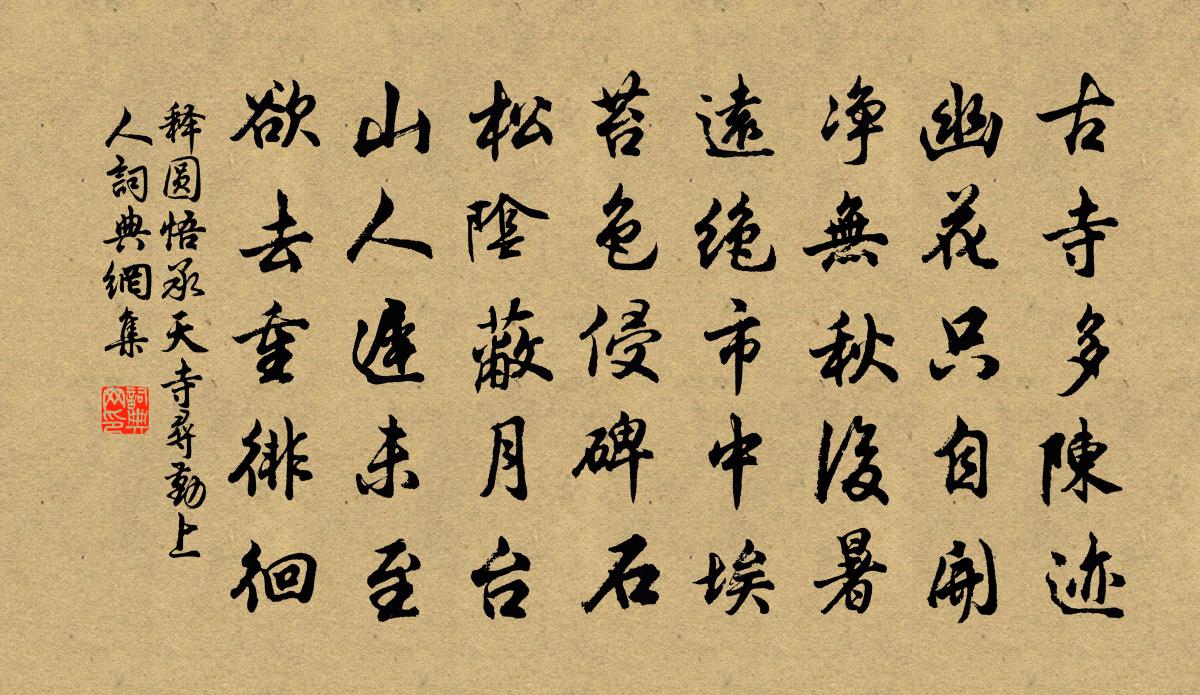 古寺多陳迹
幽花只自開
净無秋後暑
遠絶市中埃
苔色侵碑石
松陰蔽月台
山人遲未至
欲去重徘徊
释圆悟承天寺尋勤上
人詞典網集
詞典
网印